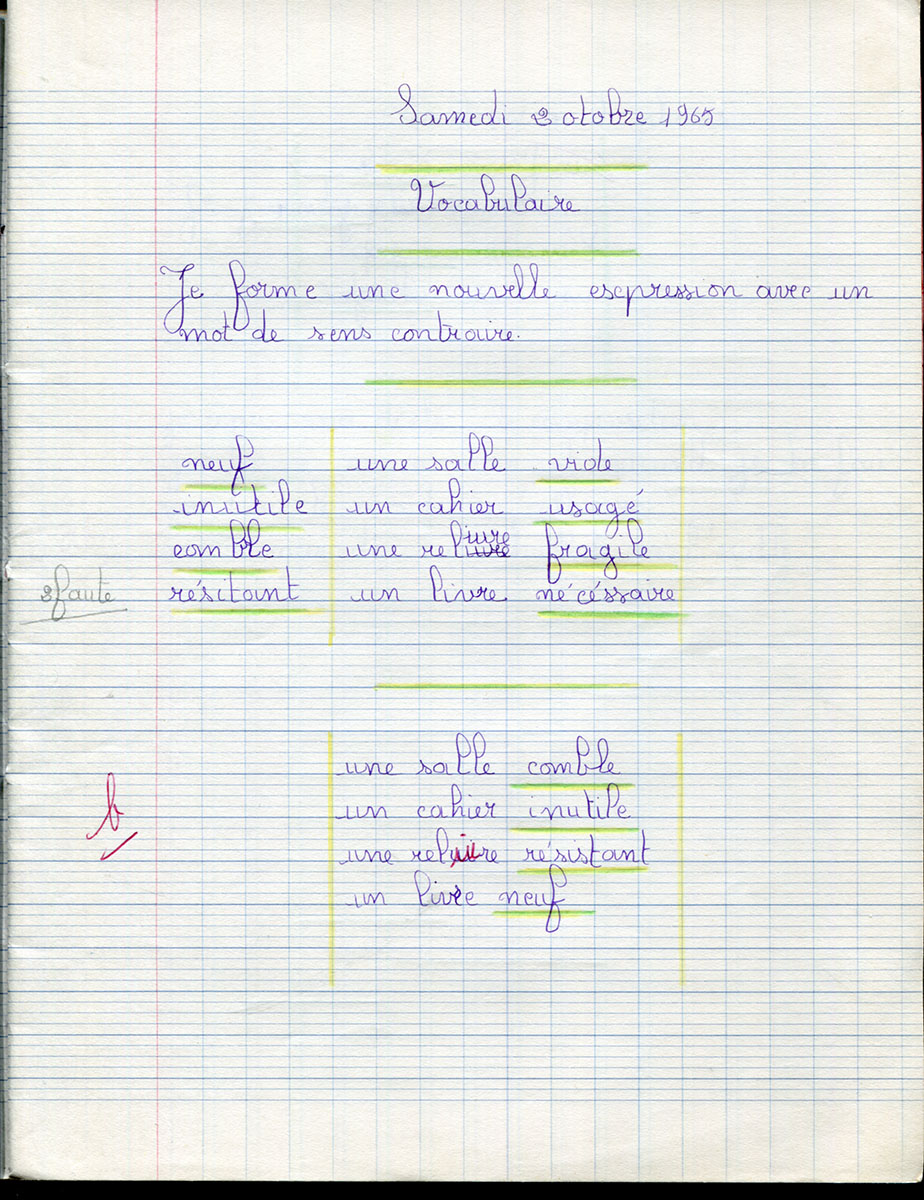 Samedi 2 otobre 1965
Vocabulaire
Je forme une nouvelle escpression avec un
mot de sens contraire.
neuf une salle vide
inutile un cahier usagé
comble une reliure fragile
2 faute résitant un livre nécéssaire
une salle comble
un cahier inutile
b une reliure résistant
un livre neuf